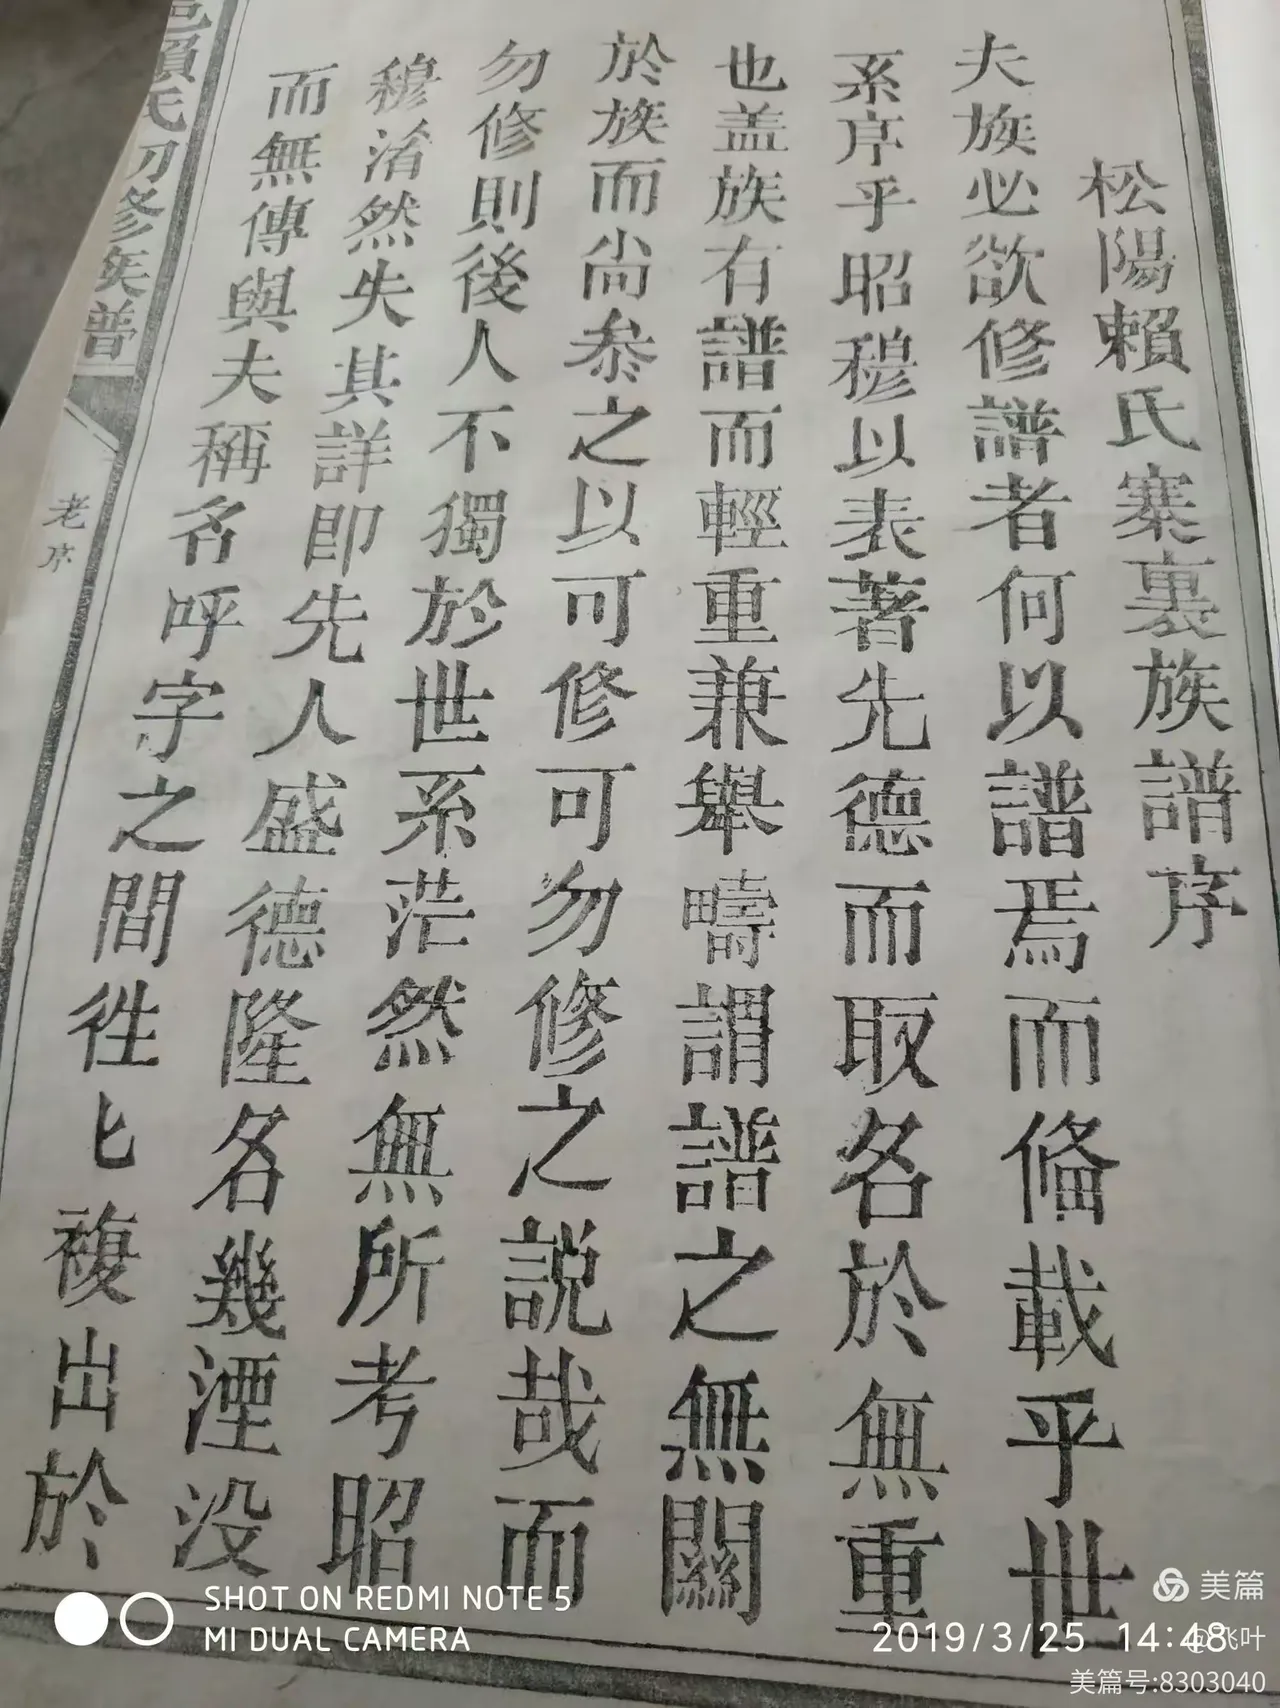 松陽賴氏寨裏族譜序
夫族必欲修譜者何以譜焉而俻載乎世
系序乎昭穆以表著先德而取名於無重
也盖族有譜而輕重兼舉疇謂譜之無關
於族而尚叅之以可修可勿修之說哉而
勿修則後人不獨於世系茫然無所考昭
穆淆然失其詳即先人盛德隆名幾湮没
而無傳與夫稱名呼字之間徃匕複出於
邑賴氏初修族普一
老序
SHOT ON REDMI NOTE 5
MI DUAL CAMERA
2019/3/25 14:48
美篇
@飞叶
美篇号:8303040